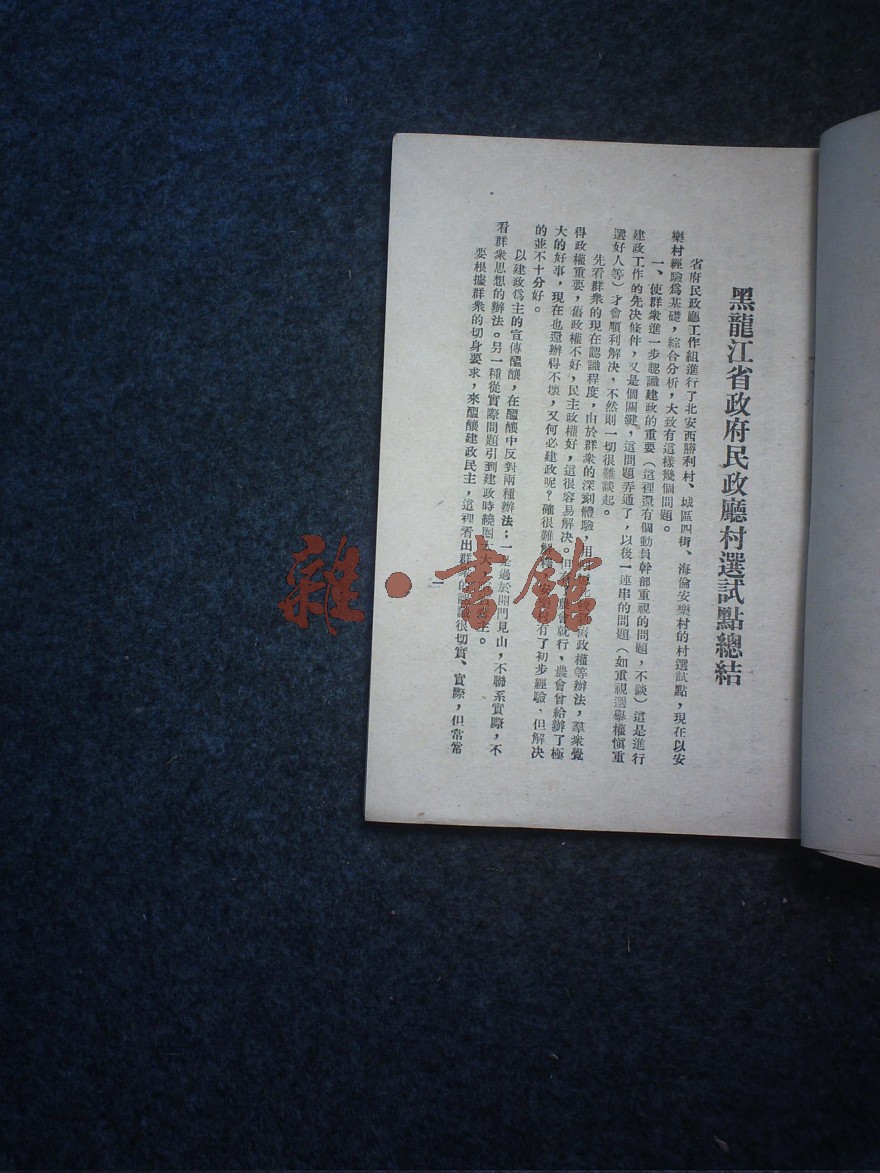 黑龍江省政府民政廳村選試點總結
省府民政廳工作組進行了北安西勝利村、城區四街、海倫安樂村的村選試點，現在以安
樂村經驗爲基礎，綜合分析，大致有這樣幾個問題。
一、使群衆進一步認識建政的重要（這裡還有個動員幹部重視的問題，不談）這是進行
建政工作的先决條件，又是個關鍵，這問題弄通了，以後一連串的問題（如重視選舉權愼重
選好人等）才會順利解决，不然則一切很難談起。
先看群衆的現在認識程度，由於群衆的深刻體驗，用 舊政權等辦法，羣衆覺
得政權重要，舊政權不好，民主政權好，這很容易解决。 就行、農會曾給辦了極
大的好事，現在也還辦得不壞，又何必建政呢？確很難解 有了初步經驗、但解决
的並不十分好。
以建政爲主的宣傳醞釀，在醞釀中反對兩種辦法；一是過於開門見山，不聯系實際，不
看群衆思想的辦法。另一種從實際問題引到建政時繞圈 大 主。
要根據群衆的切身要求，來醞釀建政民主，這裡看出群衆的 很切實、實際，但常常
一
雜·書館